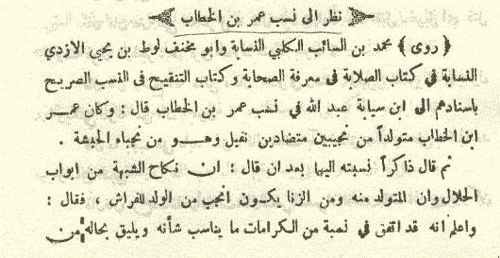 نظر الى نسب عمر بن الخطاب
﴿ روى ﴾ محمد بن السائب الكلبي النسابة وابو مخنف لوط بن يحيى الازدي
النسابة في كتاب الصلابة في معرفة الصحابة وكتاب التنقيح فى النسب الصريح
باسنادهم الى ابن سيابة عبد الله في نسب عمر بن الخطاب قال : وكان عمر
ابن الخطاب متولداً من نجيبين متضادين نفيل وهو من نجباء الحبشة .
ثم قال ذاكراً نسبته اليها بعد ان قال : ان نكاح الشبهة من ابواب
الحلال وان المتولد منه ومن الزنا يكون انجب من الولد للفراش ، فقال :
واعلم انه قد اتفق في نسبة من الكرامات ما يناسب شأنه ويليق بحاله من